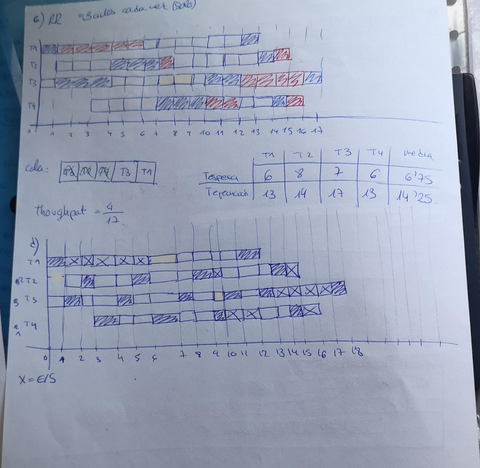 c) RR
T1
T2
T3
T4
0 1 2 3 4 5 6 7 8 9 10 11 12 13 14 15 16 17
cola: T3 T1
T1 T2 T3 T4 media
Tespera 6 8 7 6 6'75
13 14 17 13 14'25
Thoughput = 4/17
T1
T2
T3
T4
0 1 2 3 4 5 6 7 8 9 10 11 12 13 14 15 16 17 18
X = E/S